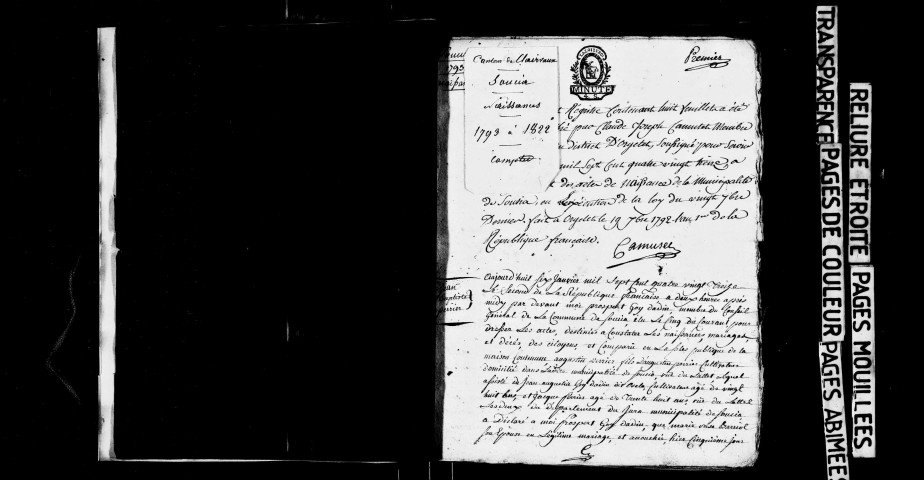 Premier
Canton de Clairvaux
Soucia
Naissances
1793 à 1822
Complet
MINUTE
1793
Registre Contenant huit feuillets a été
par Claude Joseph Camuset Membre
district D'Orgelet, soussigné pour Servir
mil Sept Cent quatre vingt treize a
des actes de Naissance de la Municipalité
de Soucia, en Exécution de la loy du vingt 7bre
Dernier, fait a Orgelet le 19 1792 L'an 1er de la
République française.
Camuset
aujourd'huit Six Janvier mil Sept Cent quatre vingt Treize
Le Second de La République française a deux heures après
midy par devant moi prospert Goy dadin, membre du Conseil
Général de La Commune de Soucia élu le Cinq du Courant pour
dresser Les actes, destinés a Constater Les naissances, mariages,
et décès, des citoyens, est Comparu en La Salle publique de la
maison Commune augustin fils Cultivateur
domicilié dans Ladite municipalité de Soucia, Lequel
assisté de Jean augustin Goy dadin Cultivateur agé de vingt
huit ans, et Jacque agé de Trente huit ans
département du Jura municipalité de Soucia
a Déclaré a moi Prospert Goy dadin, que marie
Son Epouse en Légitime mariage, est accouchée, hier Cinquième jour
RELIURE ÉTROITE
PAGES MOUILLÉES
TRANSPARENCE
PAGES DE COULEUR
PAGES ABIMÉES